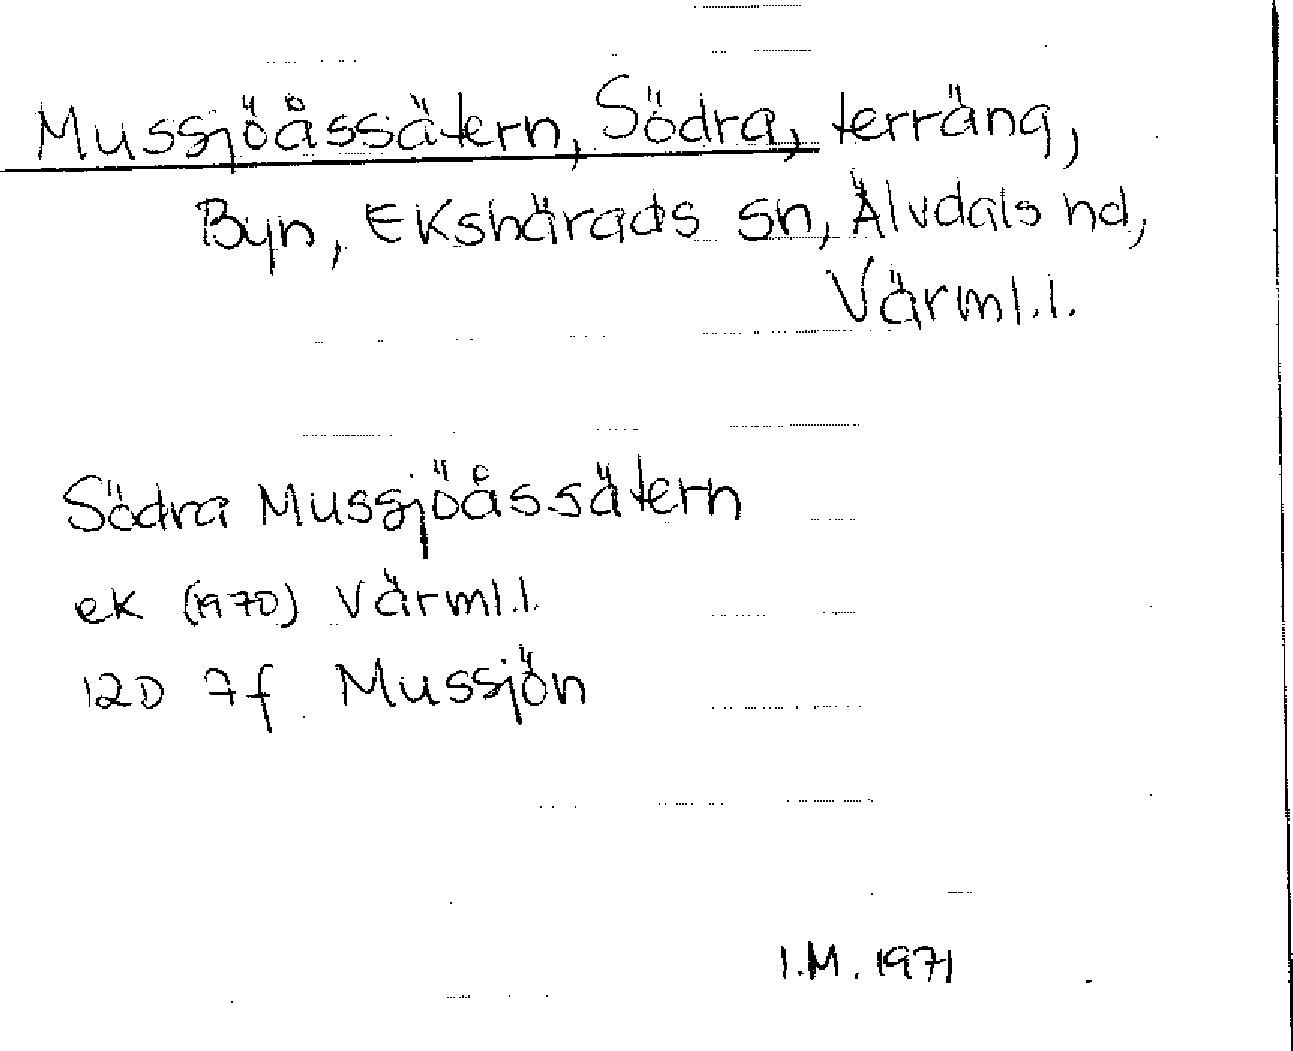 Mussjöåssätern, Södra, terräng,
Byn, Ekshärads sn, Älvdals hd,
Värml.l.
Södra Mussjöåssätern
ek (1970) Värml.l.
12D 7f Mussjön
I.M. 1971